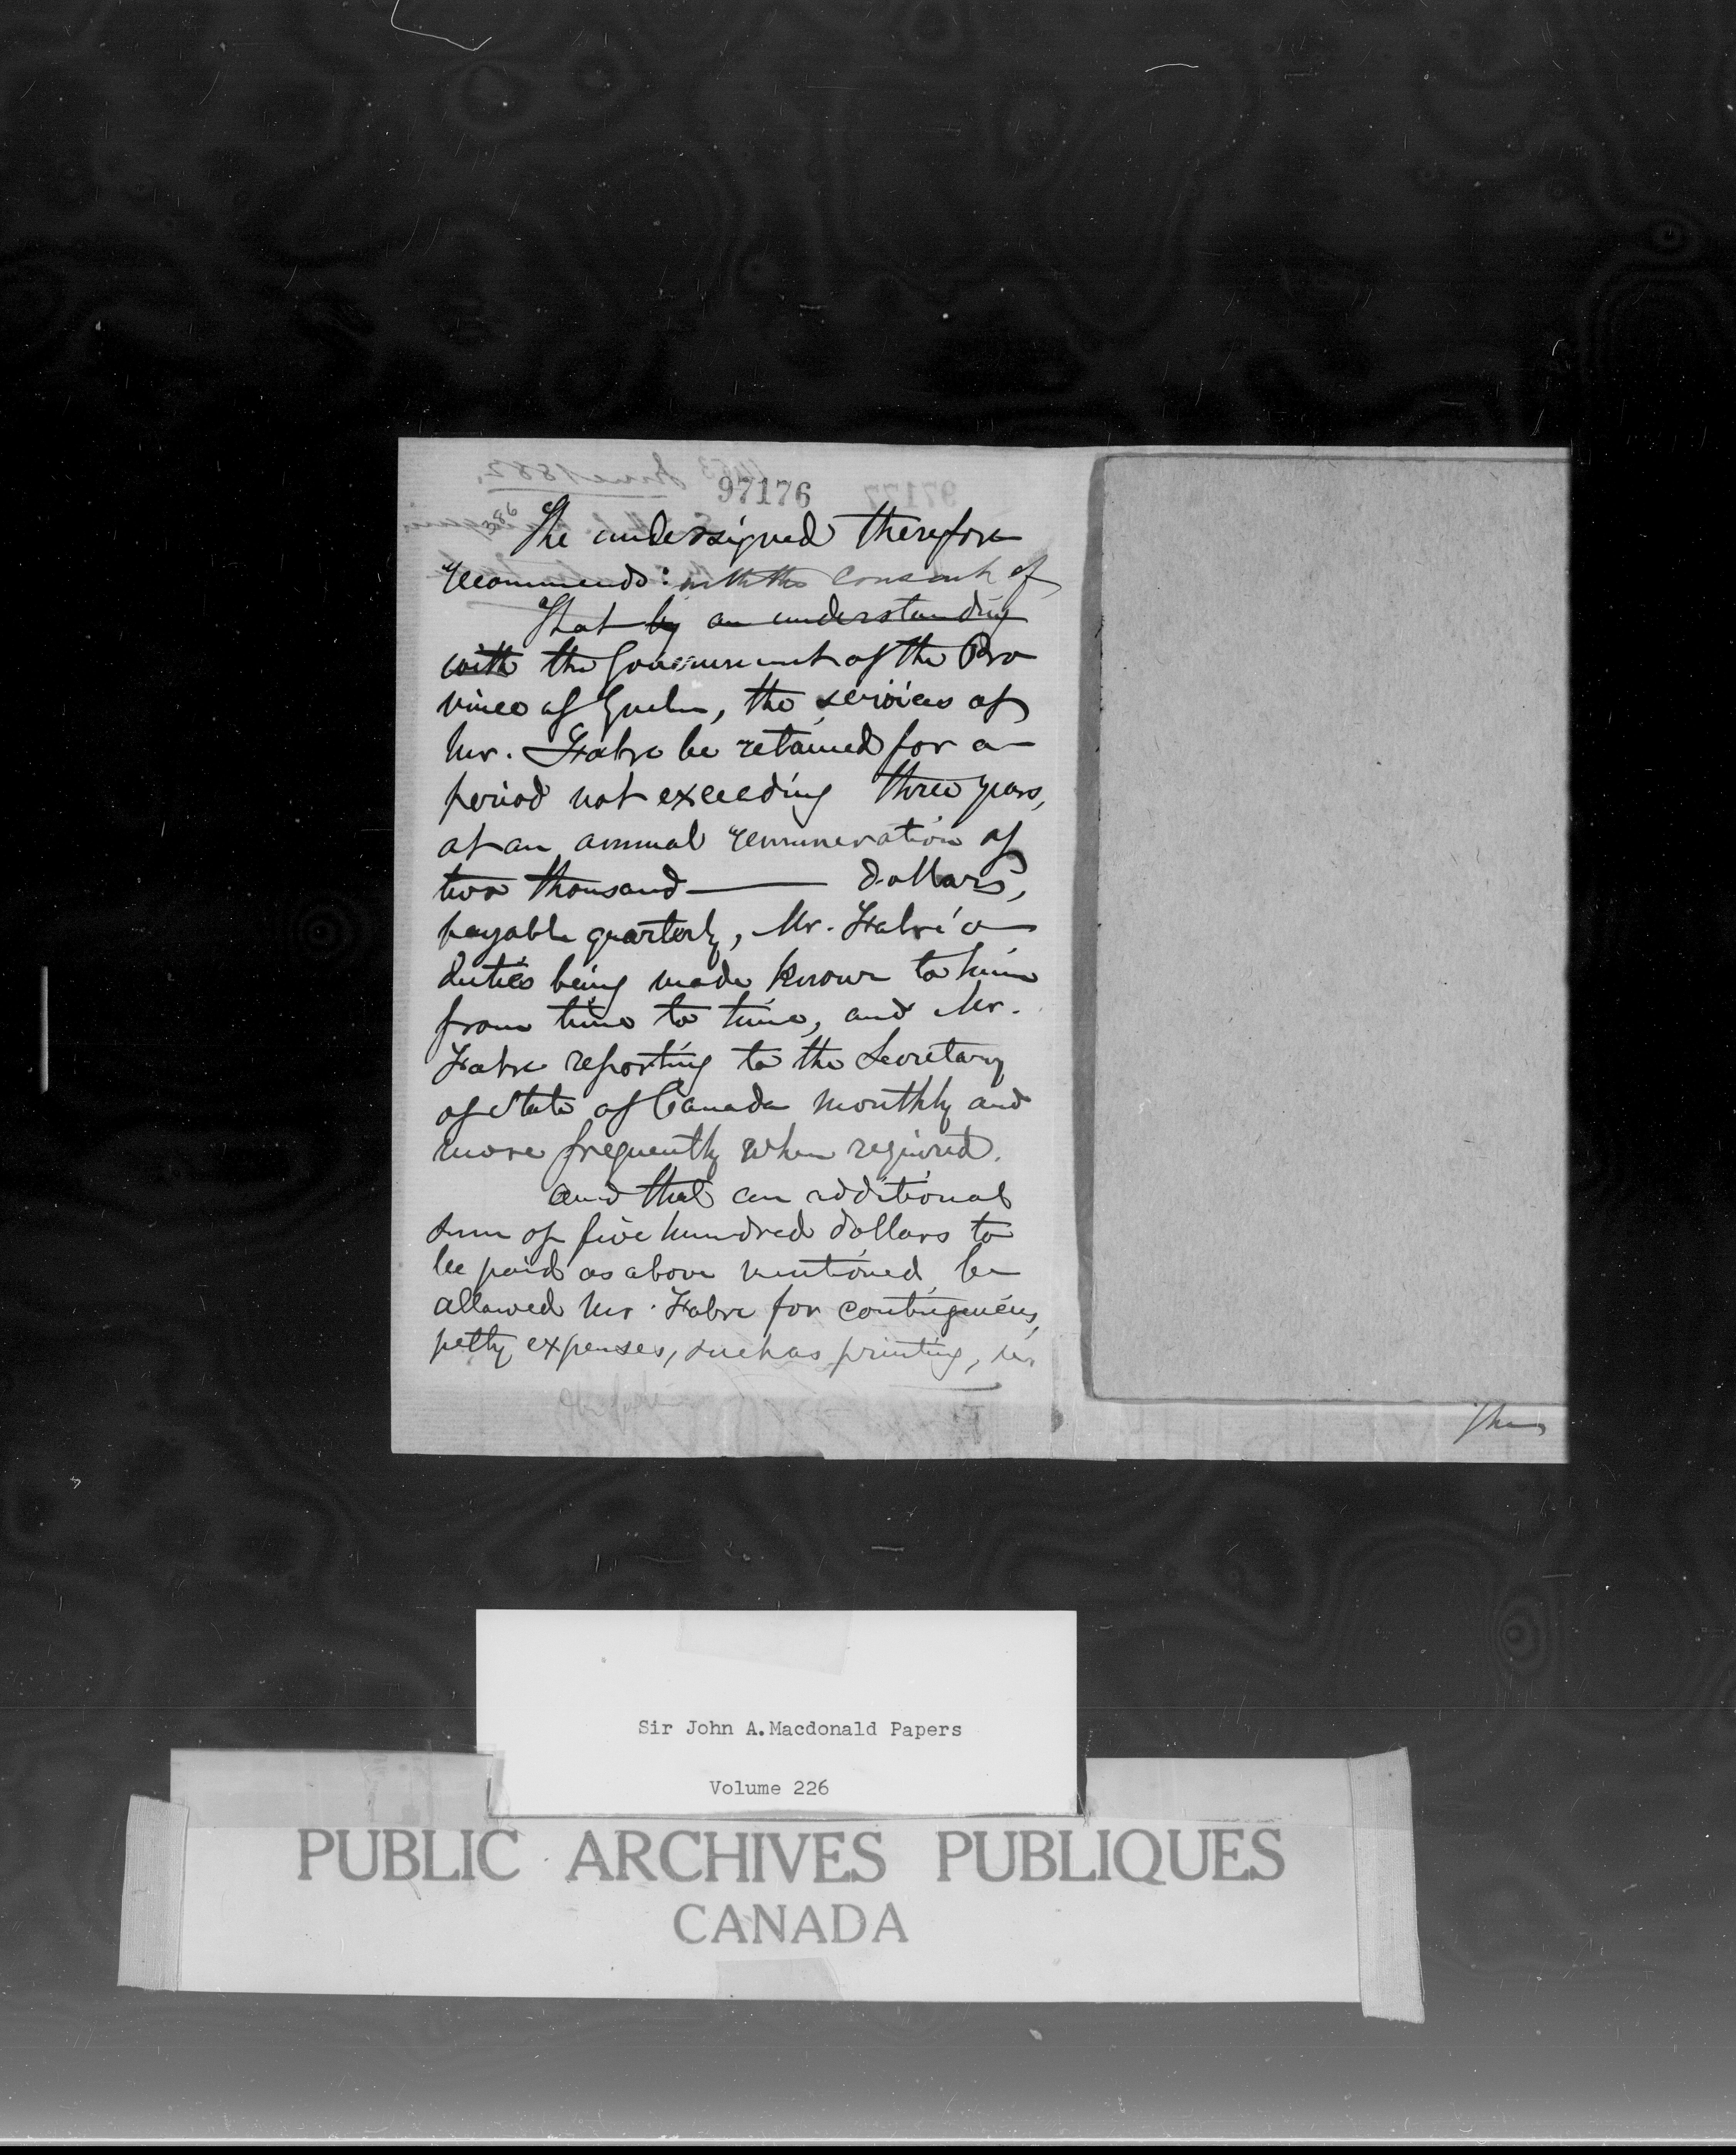 97176
The undersigned therefore
recommends: with the consent of
That by an understanding
with the Government of the Pro
vince of Quebec, the services of
Mr. Fabre be retained for a
period not exceeding three years,
at an annual remuneration of
two thousand ——— dollars,
payable quarterly, Mr. Fabre's
duties being made known to him
from time to time, and Mr.
Fabre reporting to the Secretary
of State of Canada monthly and
more frequently when required.
And that an additional
sum of five hundred dollars to
be paid as above mentioned be
allowed Mr. Fabre for contingencies,
petty expenses, such as printing, &c.
Sir John A. Macdonald Papers
Volume 226
PUBLIC ARCHIVES PUBLIQUES
CANADA